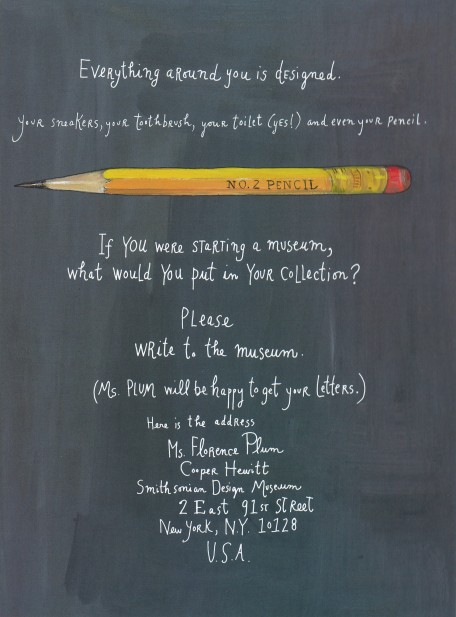 Everything around you is designed.
your sneakers, your toothbrush, your toilet (yes!) and even your pencil.
NO. 2 PENCIL
If you were starting a museum,
what would you put in your collection?
Please
write to the museum.
(Ms. Plum will be happy to get your letters.)
Here is the address
Ms. Florence Plum
Cooper Hewitt
Smithsonian Design Museum
2 East 91st Street
New York, N.Y. 10128
U.S.A.